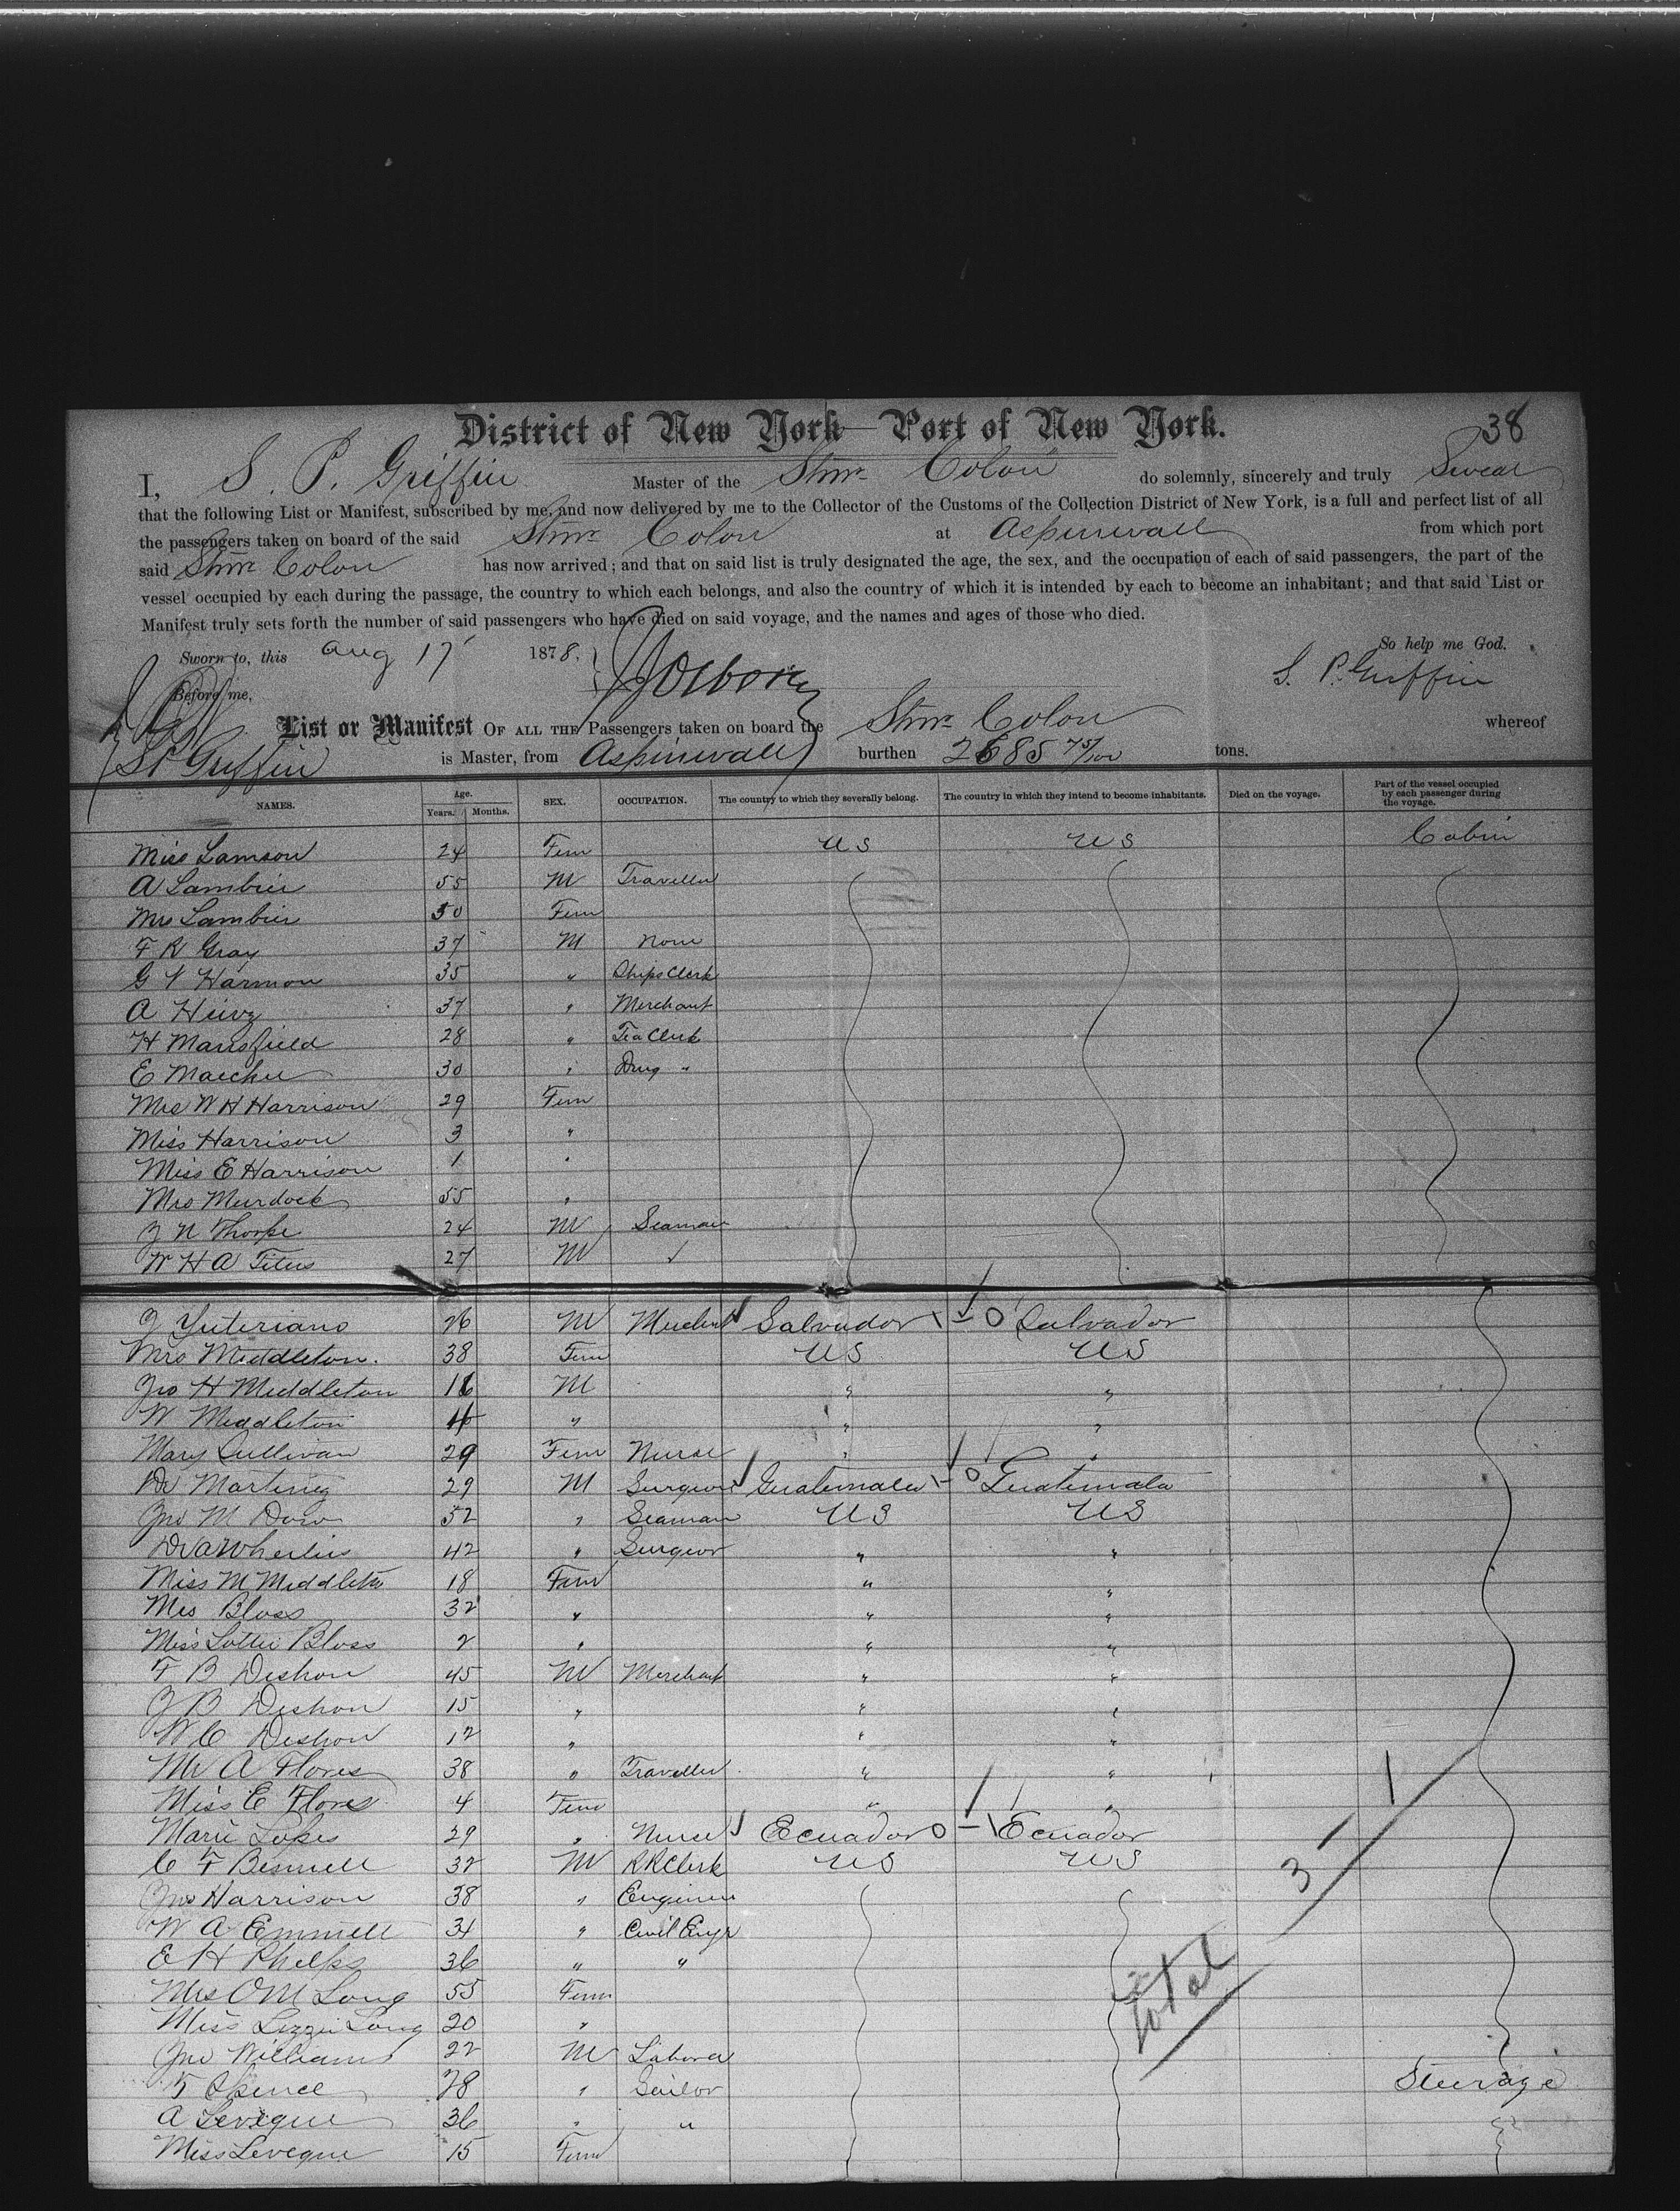 38
District of New York—Port of New York.
I, S. P. Griffin Master of the Stmr Colon do solemnly, sincerely and truly Swear
that the following List or Manifest, subscribed by me, and now delivered by me to the Collector of the Customs of the Collection District of New York, is a full and perfect list of all
the passengers taken on board of the said Stmr Colon at Aspinwall from which port
said Stmr Colon has now arrived; and that on said list is truly designated the age, the sex, and the occupation of each of said passengers, the part of the
vessel occupied by each during the passage, the country to which each belongs, and also the country of which it is intended by each to become an inhabitant; and that said List or
Manifest truly sets forth the number of said passengers who have died on said voyage, and the names and ages of those who died.
So help me God.
Sworn to, this Aug 17 1878.
S. P. Griffin
Before me,
List or Manifest OF ALL THE Passengers taken on board the Stmr Colon whereof
S P Griffin is Master, from Aspinwall burthen 2685 75/100 tons.
NAMES. Age. Years. Months. SEX. OCCUPATION. The country to which they severally belong. The country in which they intend to become inhabitants. Died on the voyage. Part of the vessel occupied by each passenger during the voyage.
Miss Lamson 24 Fem US US Cabin
A Lambier 55 M Traveller
Mrs Lambier 50 Fem
F R Gray 37 M None
G V Harmon 35 " Ships Clerk
A 37 " Merchant
H Mansfield 28 " Tea Clerk
E 30 " Drug "
Mrs W H Harrison 29 Fem
Miss Harrison 3 "
Miss E Harrison 1 "
Mrs Murdock 55 "
J N Thorpe 24 M Seaman
W H A Titus 27 M ✓
J Yuteriano 26 M Merchant Salvador Salvador
Mrs Middleton. 38 Fem US US
Jno H Middleton 16 M " "
W Middleton " " "
Mary Sullivan 29 Fem Nurse " "
Dr Martinez 29 M Surgeon Guatemala Guatemala
Jno M Dow 52 " Seaman US US
Dr A 42 " Surgeon " "
Miss M Middleton 18 Fem " "
Mrs Bloss 32 " " "
Miss Lottie Bloss 2 " " "
F B Deshon 45 M Merchant " "
J B Deshon 15 " " "
W C Deshon 12 " " "
Mr A Flores 38 " Traveller " "
Miss E Flores 4 Fem " "
Marie Lopes 29 " Nurse Ecuador Ecuador
C F 32 M RR Clerk US US
Jno Harrison 38 " Engineer
W A Emmett 34 " Civil Engr
E H Phelps 36 " "
Mrs O M Long 55 Fem
Miss Lizzie Long 20 "
Jno Williams 22 M Labora
F Spence 28 " Sailor Steerage
A Leveque 36 " "
Miss Leveque 15 Fem
total 3 — 1